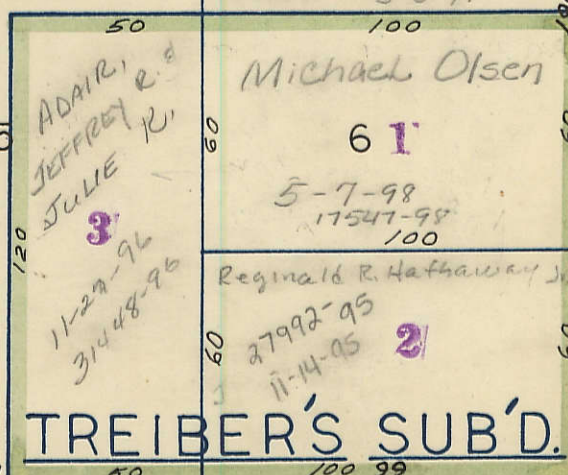 50
100
ADAIR,
JEFFREY R. &
JULIE K.
3
11-27-96
31448-96
120
60
Michael Olsen
6 1
5-7-98
17547-98
100
60
Reginald R. Hathaway Jr.
27992-95
11-14-95
2
60
60
TREIBER'S SUB'D.
50
100 99